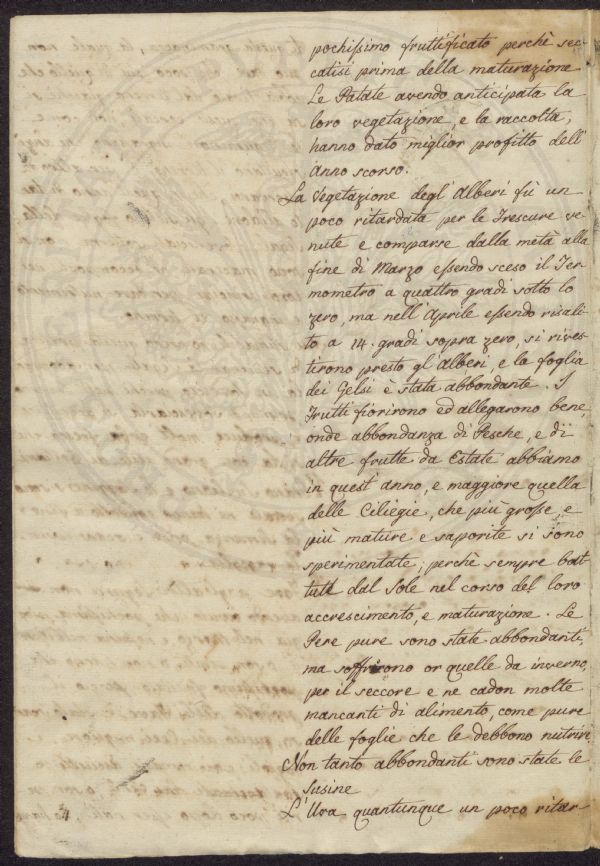 pochissimo fruttificato perchè sec-
catisi prima della maturazione
Le Patate avendo anticipata la
loro vegetazione, e la raccolta,
hanno dato miglior profitto dell'
anno scorso.
La Vegetazione degl'Alberi fù un
poco ritardata per le Frescure ve-
nute e comparse dalla metà alla
fine di Marzo essendo sceso il Ter-
mometro a quattro gradi sotto lo
zero, ma nell'Aprile essendo risali-
to a 14. gradi sopra zero, si rives-
tirono presto gl'Alberi, e la foglia
dei Gelsi è stata abbondante. I
Frutti fiorirono ed allegarono bene,
onde abbondanza di Pesche, e di
altre frutte da Estate abbiamo
in quest'anno, e maggiore quella
delle Ciliegie, che più grosse, e
più mature e saporite si sono
sperimentate; perchè sempre bat-
tute dal Sole nel corso del loro
accrescimento, e maturazione. Le
Pere pure sono state abbondanti,
ma soffrirono or quelle da inverno,
per il seccore e ne cadon molte
mancanti di alimento, come pure
delle foglie che le debbono nutrire
Non tanto abbondanti sono state le
susine
L'Uva quantunque un poco ritar-